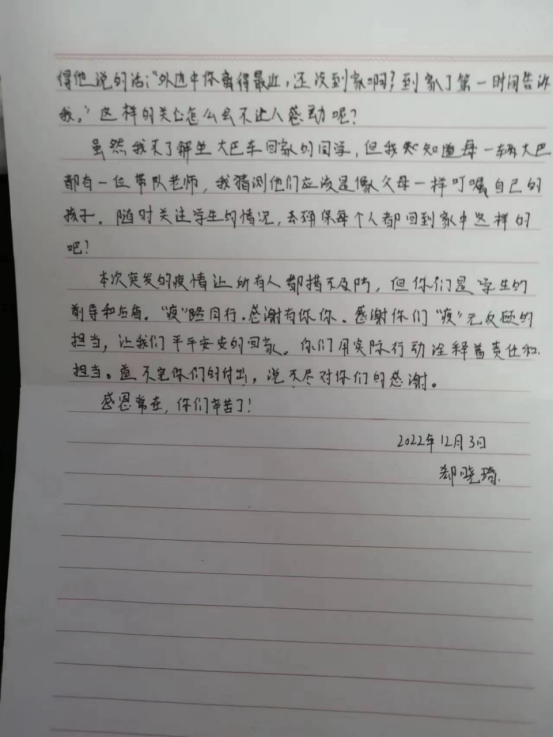 得他说的话:"外边中你离得最近,还没到家啊?到家了第一时间告诉
我。"这样的关心怎么会不让人感动呢?
虽然我不了解坐大巴车回家的同学,但我知知道每一辆大巴
都有一位带队老师,我猜测他们应该是像父母一样叮嘱自己的
孩子。随时关注学生的情况,去确保每个人都回到家中这样的
吧?
本次突发的疫情让所有人都措不及防,但你们是学生的
前导和后盾。"疫"路同行,感谢有你你、感谢你们"疫"无反顾的
担当,让我们平平安安的回家。你们用实际行动诠释着责任和
担当。道不完你们的付出,说不尽对你们的感谢。
感恩常在,你们辛苦了!
2022年12月3日
郝晓琦